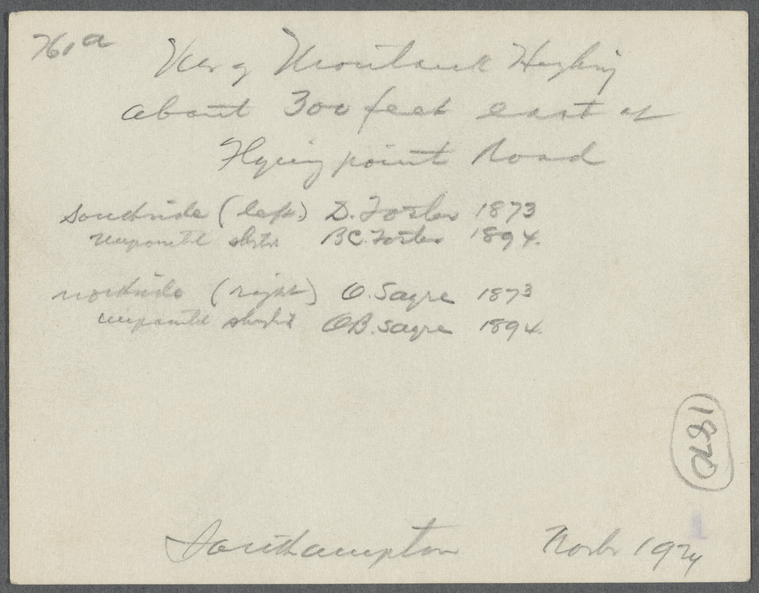 761a
View of Montauk Highway
about 300 feet east of
Flying point Road
southside (left) D. Foster 1873
unpainted BC. Foster 1894.
northside (right) O. Sayre 1873
unpainted OB. Sayre 1894.
1870
Southampton Novbr 1924